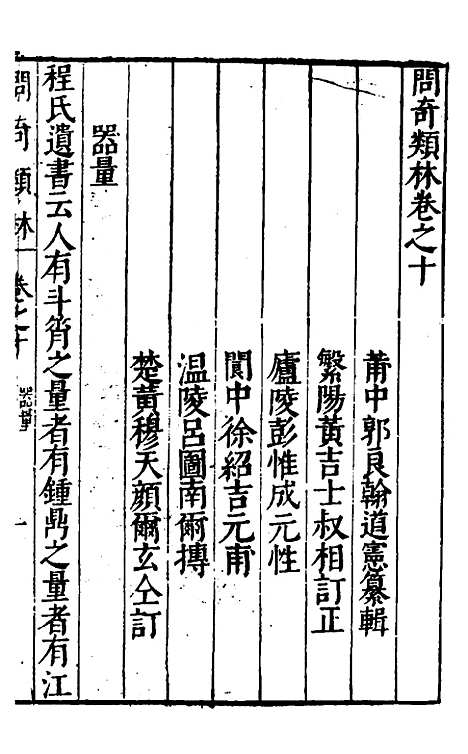 問奇類林卷之十
莆中郭良翰道憲纂輯
繁陽黃吉士叔相訂正
廬陵彭惟成元性
閬中徐紹吉元甫
溫陵呂圖南爾摶
楚黃穆天顏爾玄仝訂
器量
程氏遺書云人有斗筲之量者有鍾鼎之量者有江
問奇類林 卷之十 器量 一